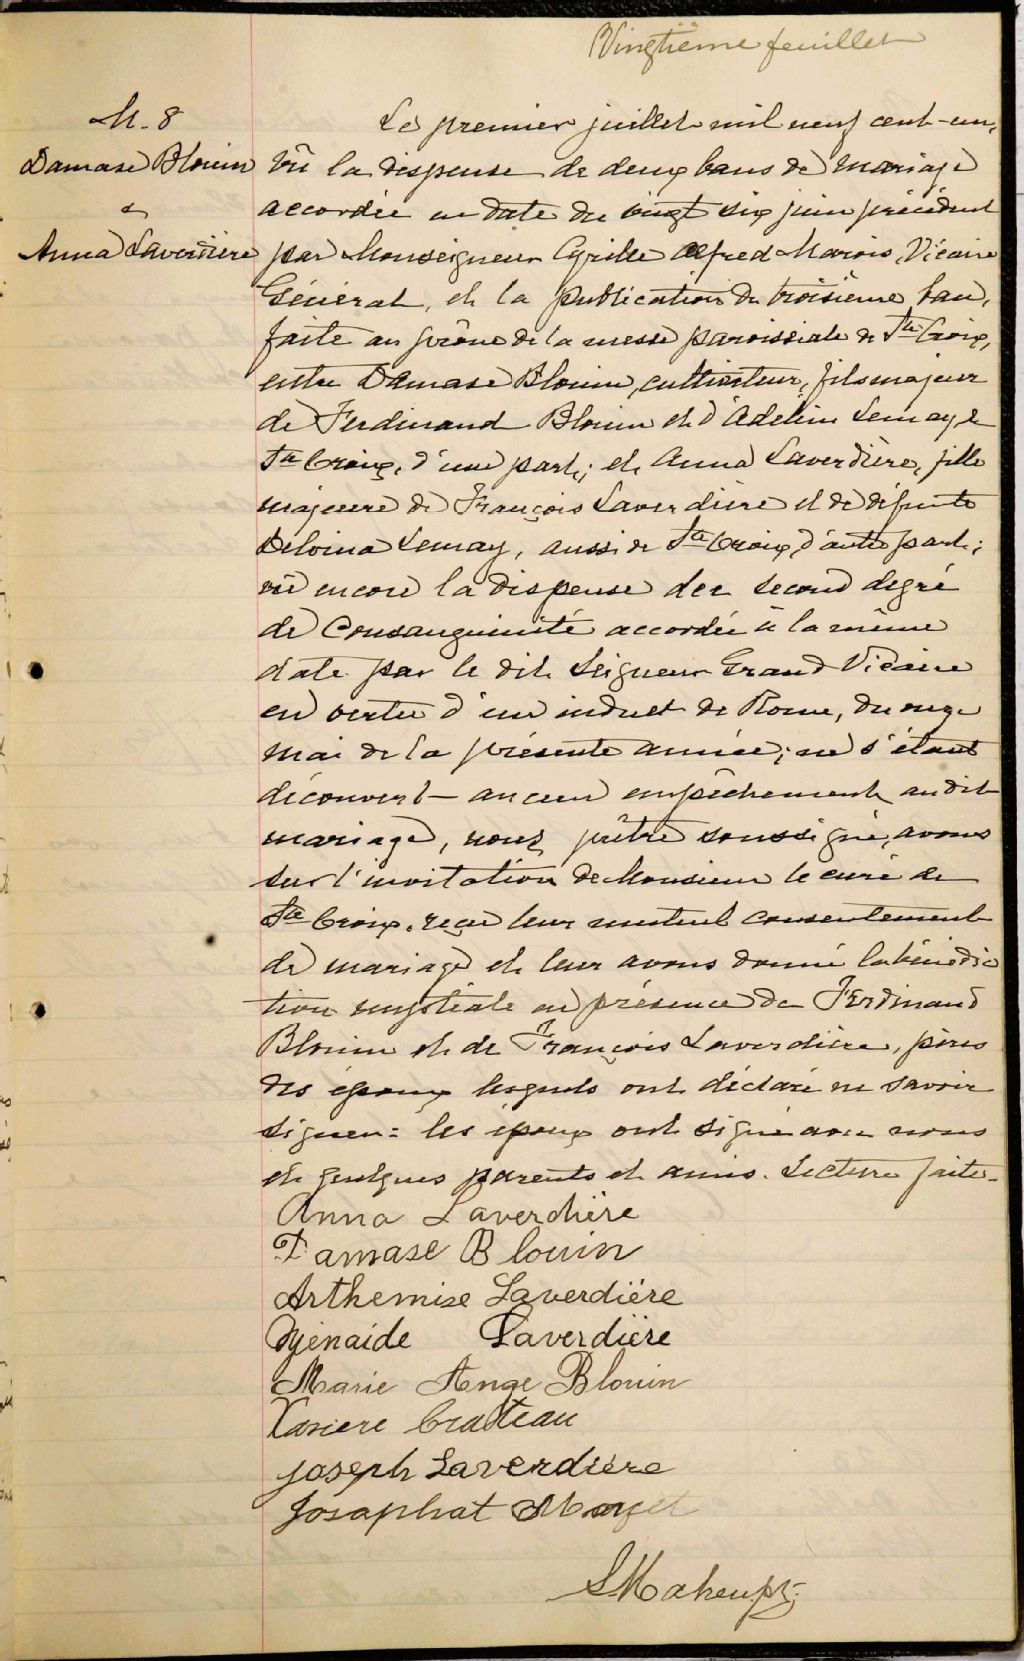 Vingtième feuillet
M. 8
Damase Blouin
&
Anna Laverdière
Le premier juillet mil neuf cent-un,
vû la dispense de deux bans de mariage
accordée en date du vingt six juin précédent
par Monseigneur Cyrille Alfred Marois, Vicaire
Général, et la publication du troisième ban,
faite au prône de la messe paroissiale de Ste Croix,
entre Damase Blouin, cultivateur, fils majeur
de Ferdinand Blouin et d'Adeline Lemay de
Ste Croix, d'une part; et Anna Laverdière, fille
majeure de François Laverdière et de défunte
Delvina Lemay, aussi de Ste Croix, d'autre part;
vû encore la dispense du second degré
de Consanguinité accordée à la même
date par le dit Seigneur Grand Vicaire
en vertu d'un indult de Rome, du onze
mai de la présente année; ne s'étant
découvert aucun empêchement au dit
mariage, nous, prêtre soussigné, avons
sur l'invitation de Monsieur le curé de
Ste Croix, reçu leur mutuel consentement
de mariage et leur avons donné la bénédic
tion nuptiale en présence de Ferdinand
Blouin et de François Laverdière, pères
des époux lesquels ont déclaré ne savoir
signer: les époux ont signé avec nous
et quelques parents et amis. Lecture faite.
Anna Laverdière
Damase Blouin
Arthemise Laverdière
Laverdière
Marie Ange Blouin
Joseph Laverdière
Josaphat